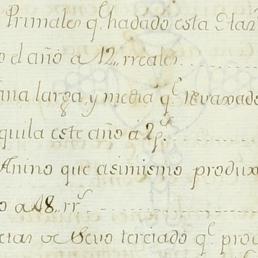 Primales q.e ha dado esta Star
o el año a 12„ rreales
ana larga, y media q.e se ha xado
quila este año a 2 p.s
Anino que asimismo produx
o a 48„ rr.s
tas de Sevo terciado q.e pro